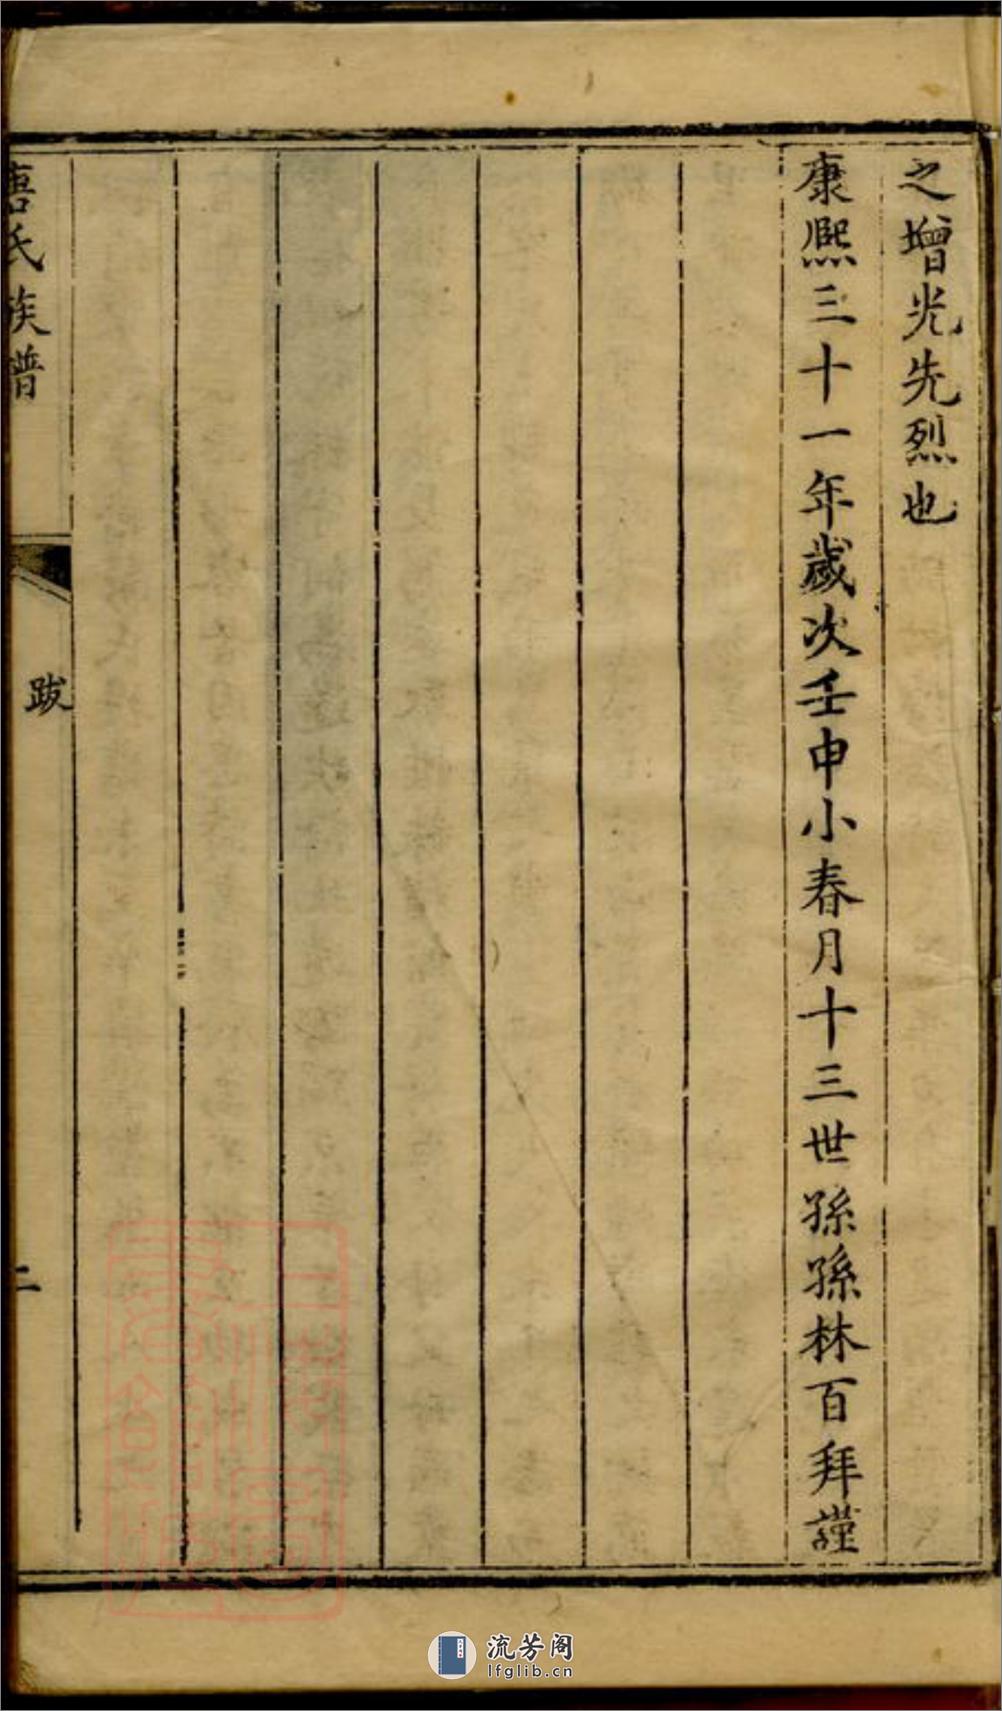 之增光先烈也
康熙三十一年歲次壬申小春月十三世孫孫林百拜謹
唐氏族譜
跋
二
流芳阁
lfglib.cn